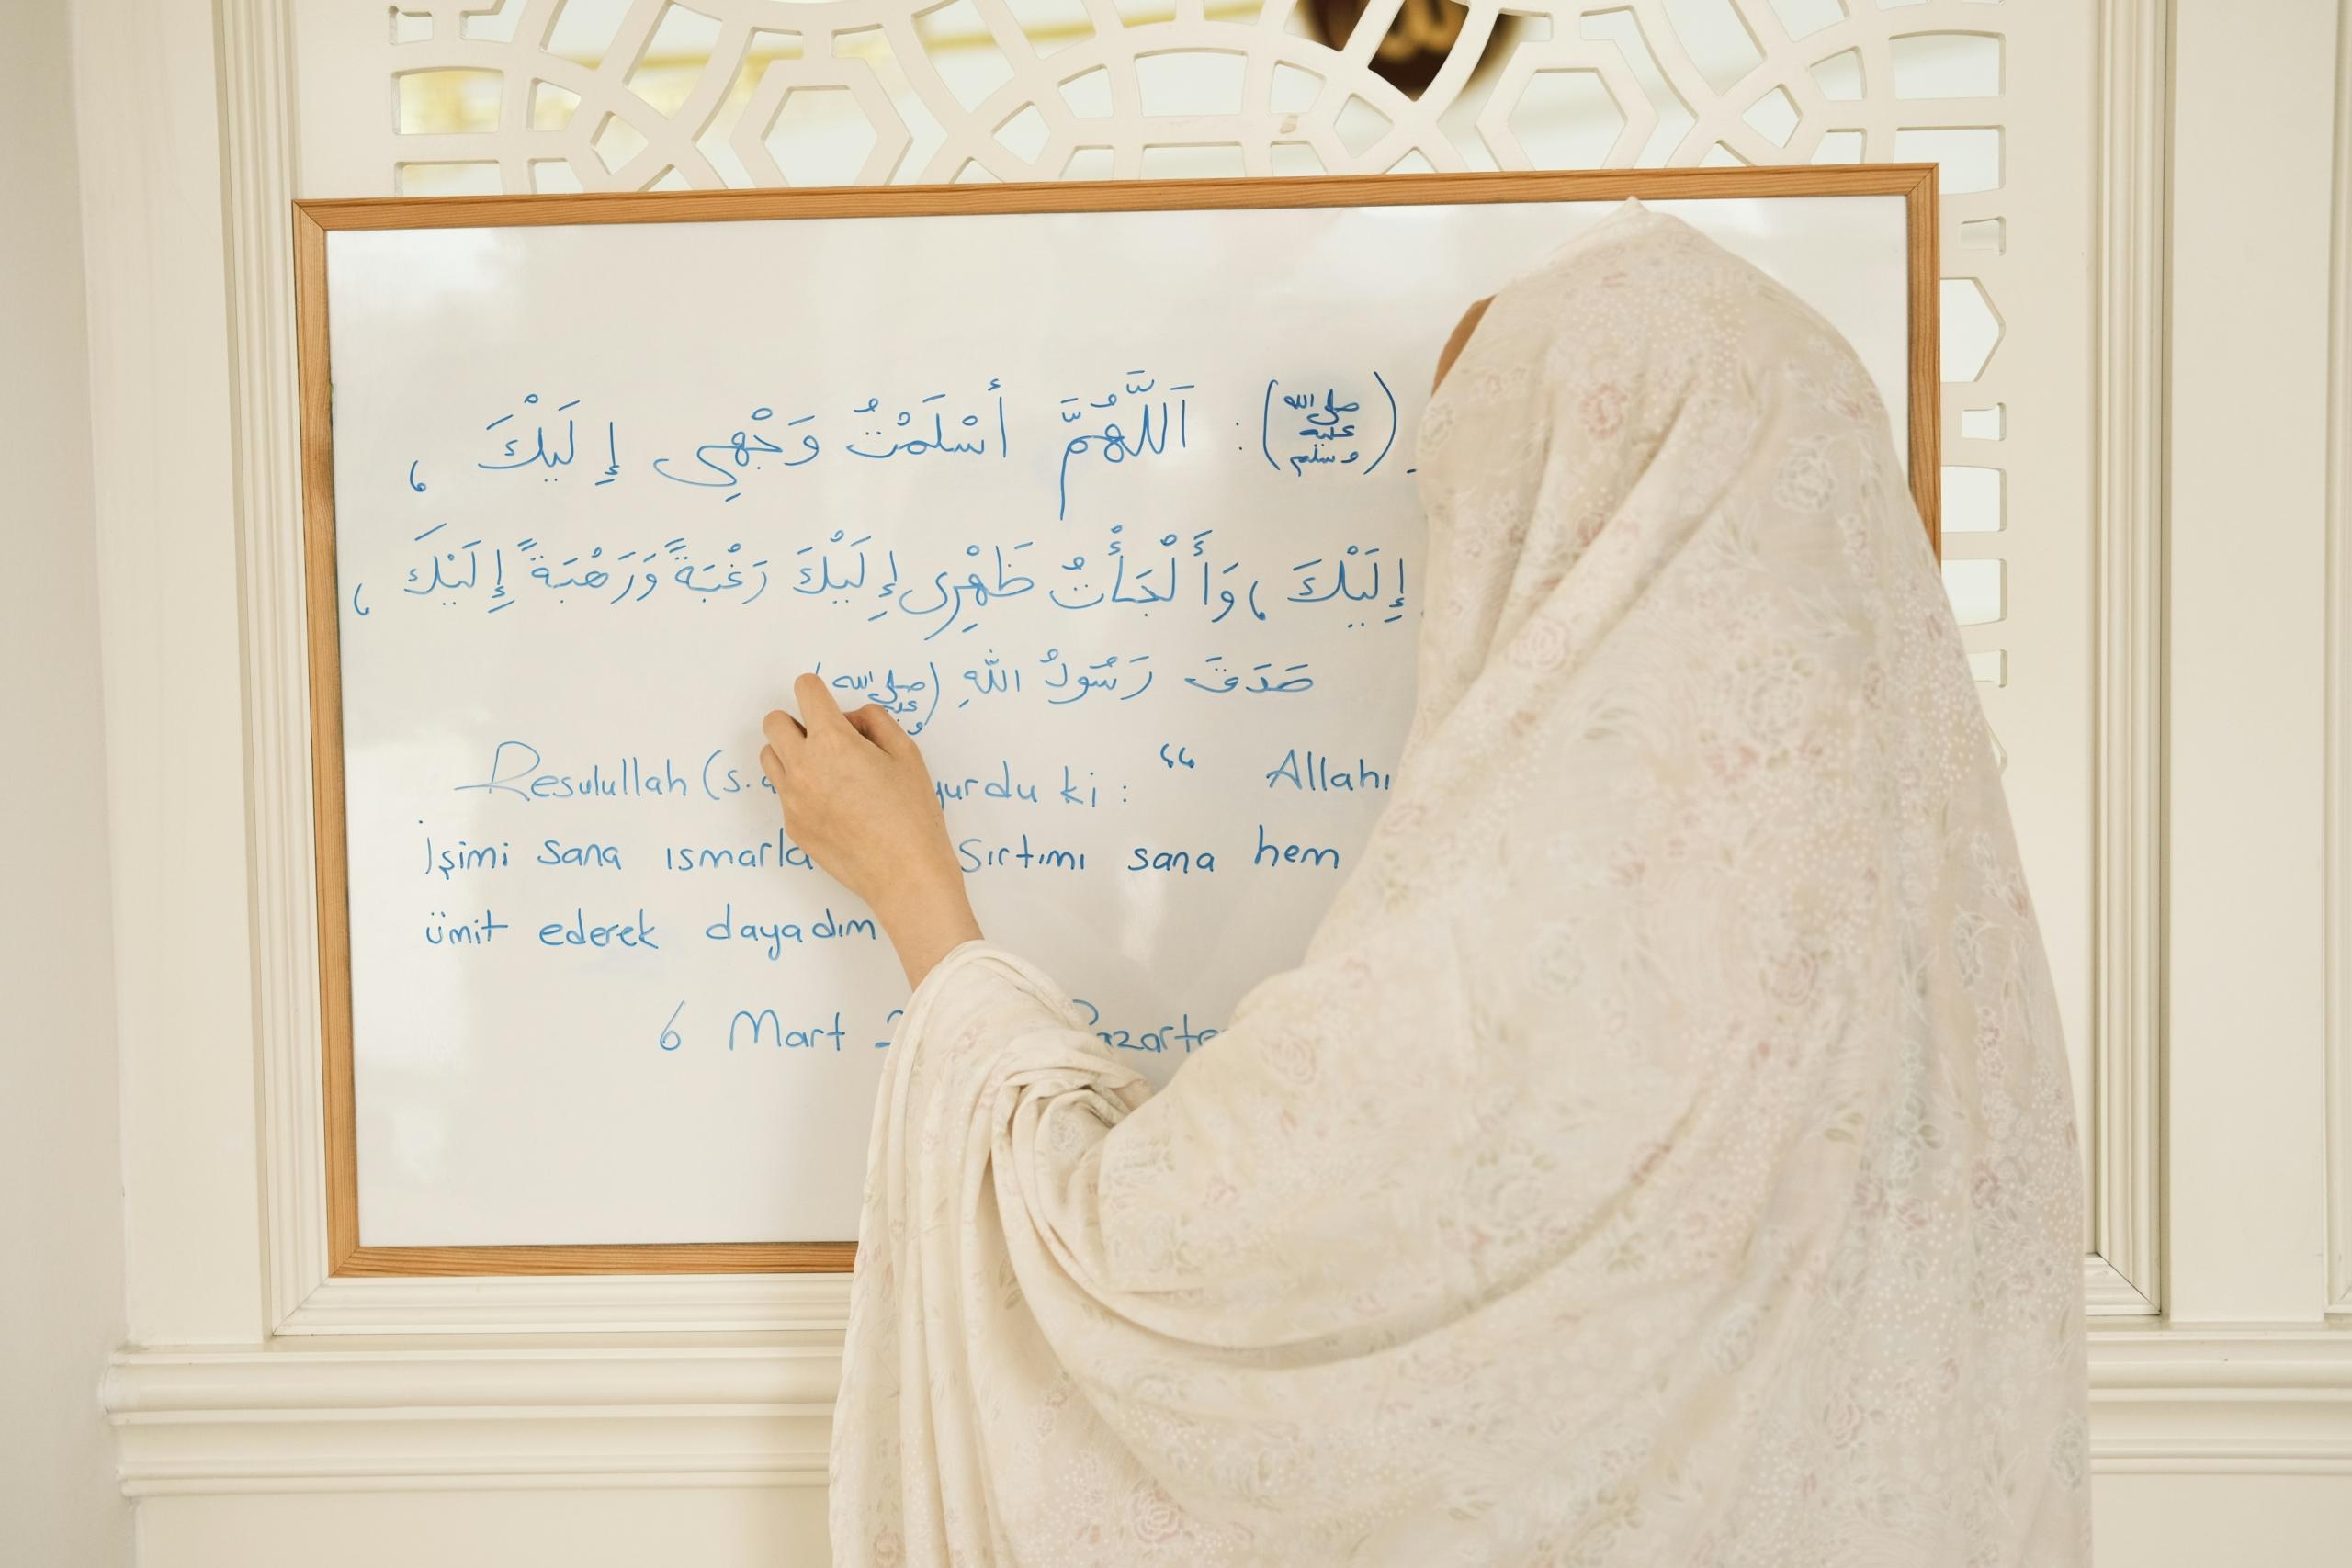 (صلى الله عليه وسلم) : اَللَّهُمَّ أَسْلَمْتُ وَجْهِي إِلَيْكَ ،
إِلَيْكَ ، وَأَلْجَأْتُ ظَهْرِى إِلَيْكَ رَغْبَةً وَرَهْبَةً إِلَيْكَ ،
صَدَقَ رَسُولُ اللَّهِ (صلى الله
Resulullah (s.a yurdu ki : “ Allahı
İşimi sana ısmarla Sırtımı sana hem
ümit ederek dayadım
6 Mart 2 Pazarte